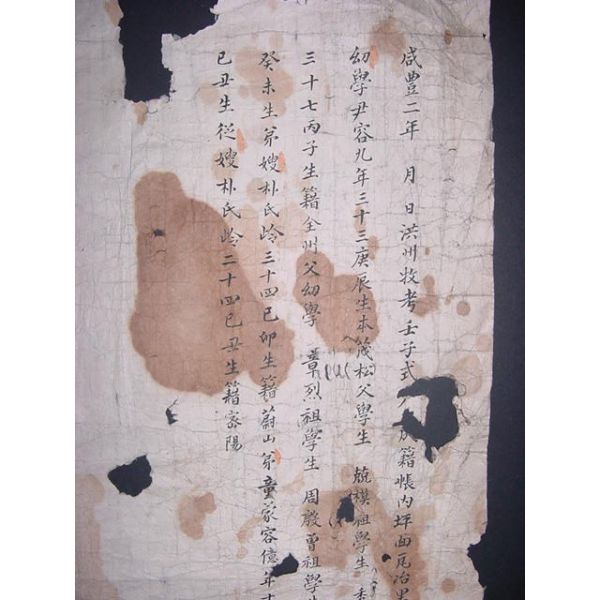 咸豊二年 月 日洪州牧考壬子式 成籍帳內坪面瓦冶里
幼學尹容九年三十三庚辰生本茂松父學生 兢模祖學生
三十七丙子生籍全州父幼學 章烈祖學生 周殷曾祖學生
癸未生弟嫂朴氏齡三十四己卯生籍蔚山弟童蒙容億年十
己丑生從嫂朴氏齡二十四己丑生籍密陽